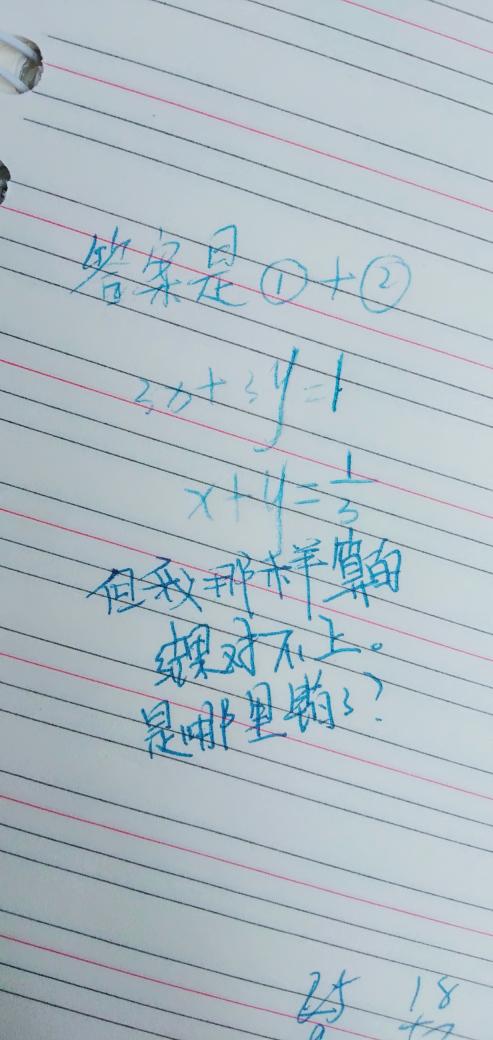 答案是①+②
3x+3y=1
x+y=1/3
但我那样算的
结果对不上。
是哪里错了?
25 18